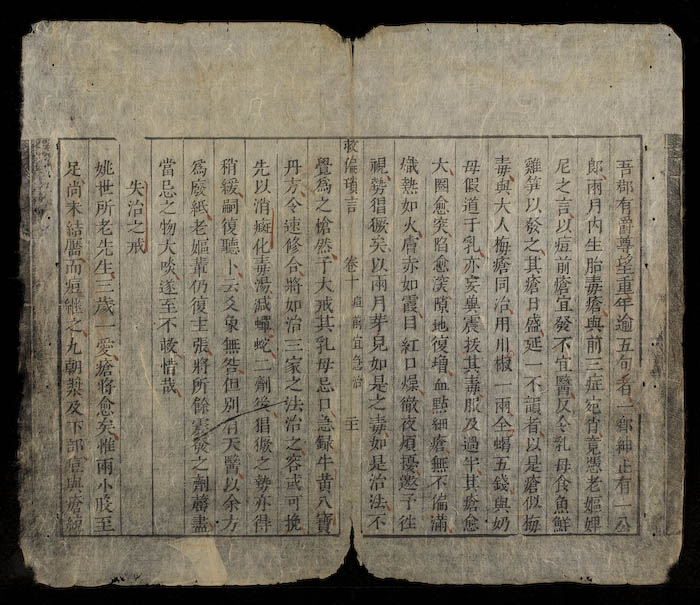 吾鄉有爵尊望重年逾五旬者一鄉紳止有一公
郎兩月內生胎毒瘡與前三症宛肖竟憑老嫗婢
尼之言以痘前瘡宜發不宜醫反令乳母食魚鮮
雞笋以發之其瘡日盛延一不讀者以是瘡似梅
毒與大人梅瘡同治用川椒一兩全蝎五錢與奶
母假道于乳亦妄冀震拔其毒服及過半其瘡愈
大圈愈突陷愈深隙地復增血點細瘡無不徧滿
熾熱如火膚亦如霞目紅口燥徹夜煩擾邀予往
視勢猖獗矣以兩月芽兒如是之毒如是治法不
救偏瑣言 卷十 痘前宜急治
覺為之愴然予大戒其乳母忌口急錄牛黃八寶
丹方令速修合將如治三家之法治之容或可挽
先以消癍化毒湯減蟬蛇二劑後猖獗之勢亦得
稍緩嗣復聽卜云爻象無咎但別有天醫以余方
為廢紙老嫗輩仍復主張將所餘震發之劑盡
當忌之物大啖遂至不救惜哉
失治之戒
姚世所老先生三歲一愛瘡將愈矣惟兩小股至
足尚未結靨而痘繼之九朝漿及下部痘與瘡